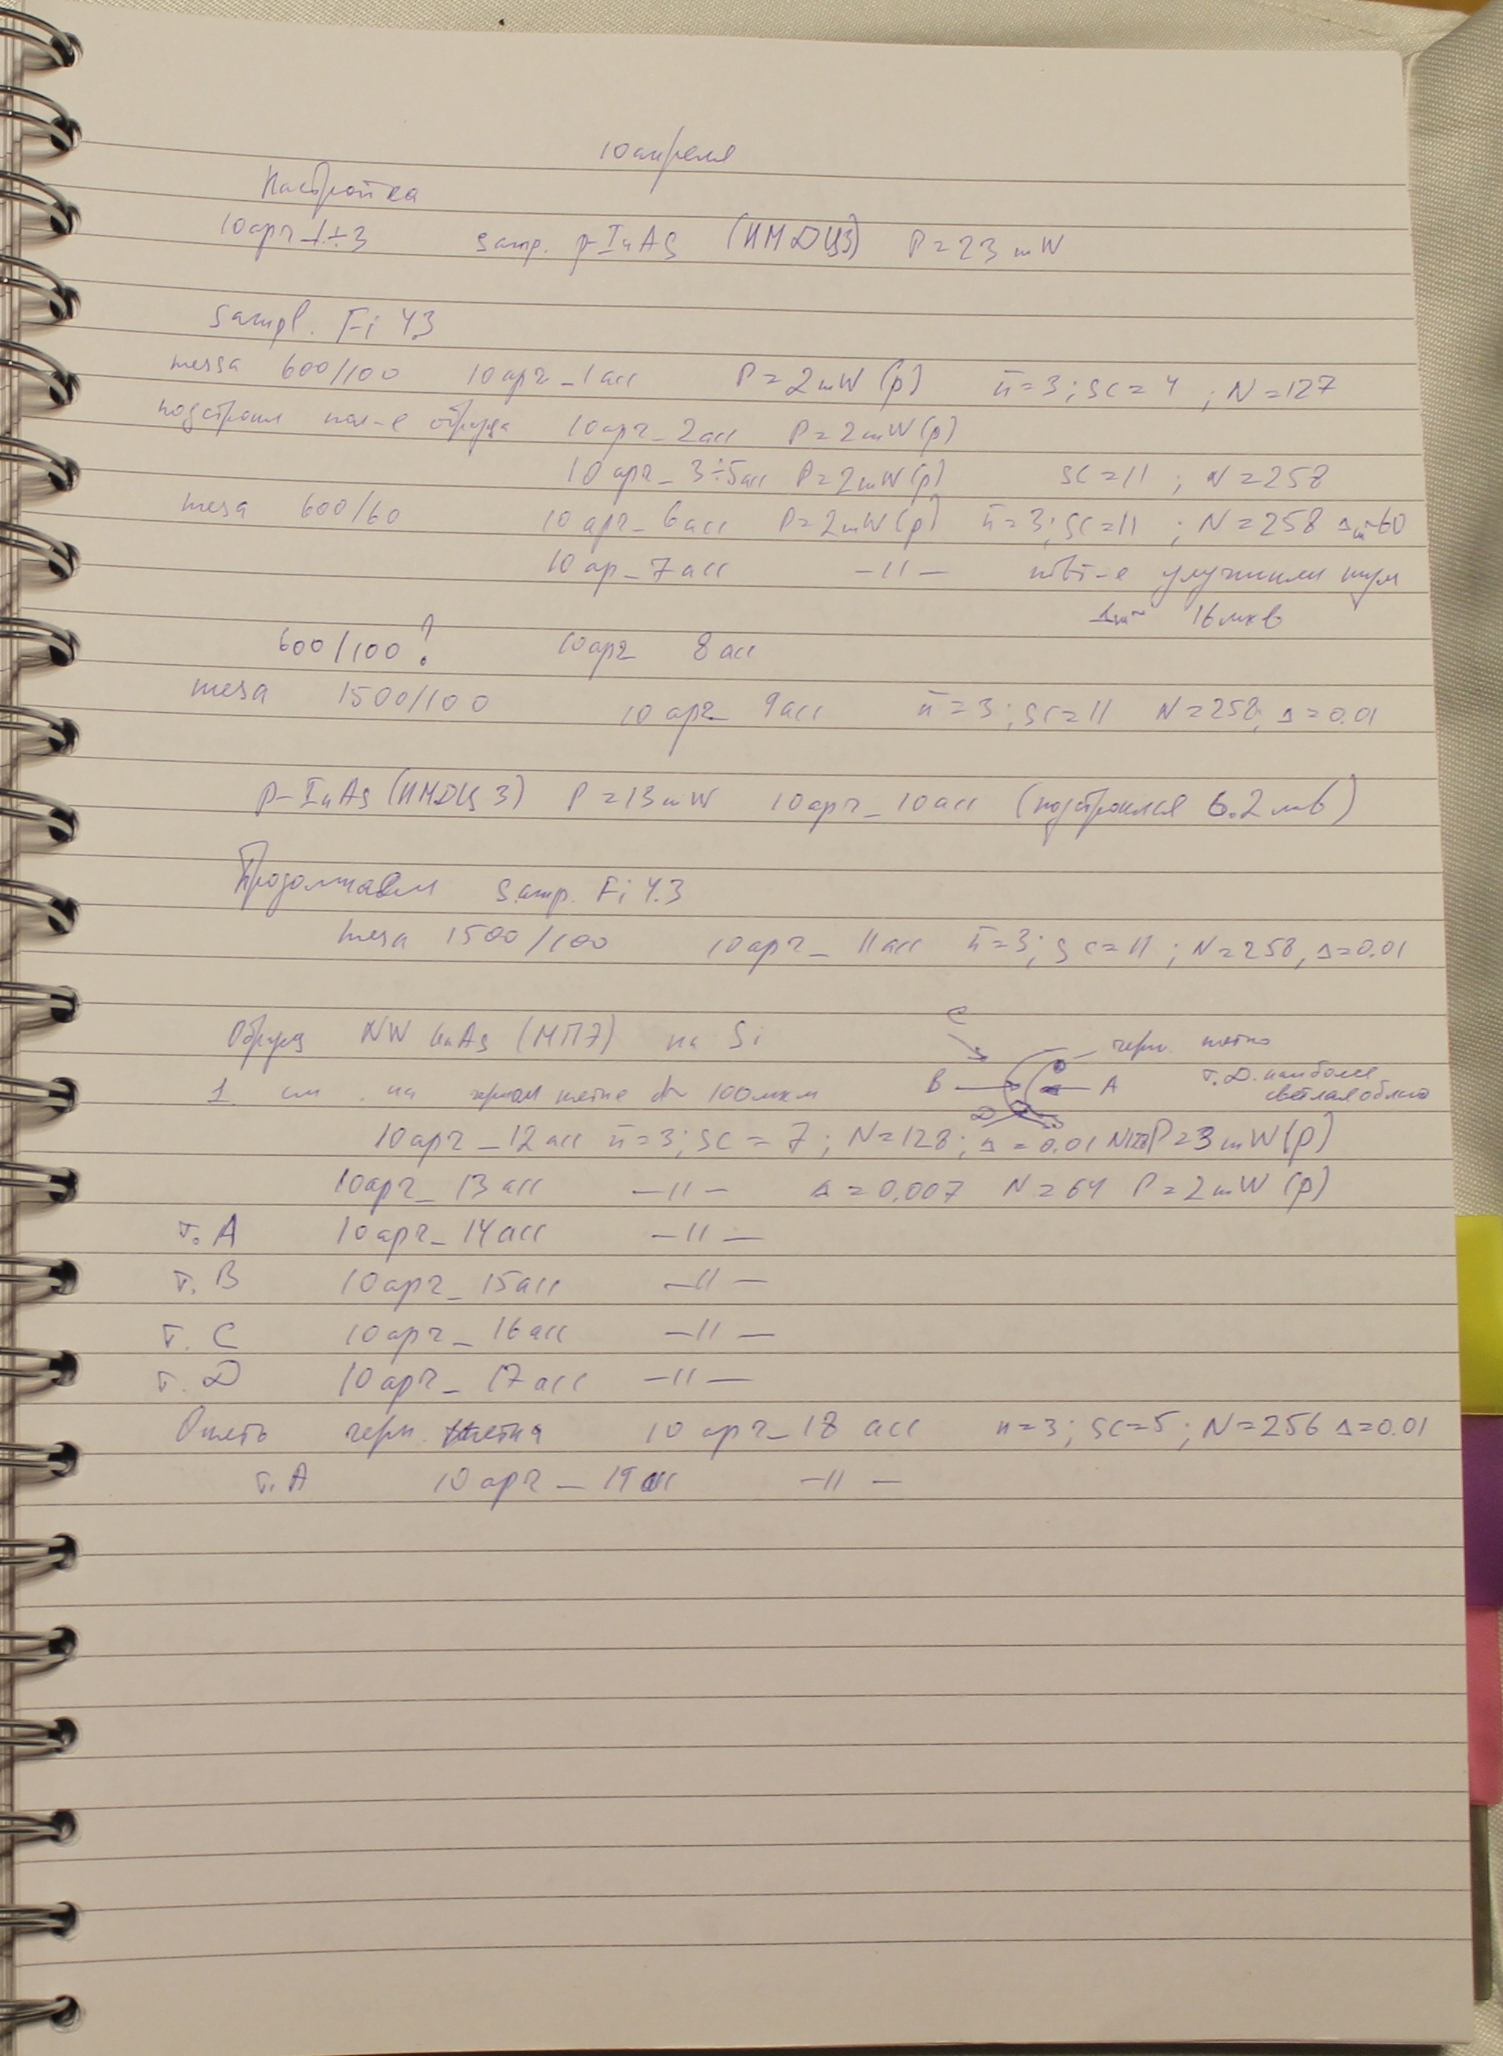 10 апреля
Настройка
10apr 1÷3 samp. p-InAs (ИМДЦ3) P=23 mW
Sampl. Fi 43
messa 600/100 10apr_1acc P=2mW(p) n̄=3; sc=4 ; N=127
подстроил пол-е образца 10apr_2acc P=2mW(p)
10apr_3÷5acc P=2mW(p) sc=11 ; N=258
mesa 600/60 10apr_6acc P=2mW(p) n̄=3; sc=11 ; N=258 60
10ap_7acc —11— улучшили шум
16 мкв
600/100? 10apr 8acc
mesa 1500/100 10apr_9acc n̄=3; sc=11 N=258; Δ=0.01
p-InAs (ИМДЦ 3) P=13mW 10apr_10acc (подстроился 6.2мв)
Продолжаем samp. Fi 4.3
mesa 1500/100 10apr_11acc n̄=3; sc=11 ; N=258, Δ=0.01
Образец NW (МПЭ) на Si
C
черн. пятно
B A т.D. наиболее
светлая област
1. см. на черном пятне 100мкм
D
10apr_12acc n̄=3; sc=7; N=128; Δ=0.01 P=3mW(p)
10apr_13acc —11— Δ=0.007 N=64 P=2mW(p)
т. A 10apr_14acc —11—
т. B 10apr_15acc —11—
т. C 10apr_16acc —11—
т. D 10apr_17acc —11—
Опять черн. 10apr_18acc n=3; sc=5; N=256 Δ=0.01
т. A 10apr_19acc —11—